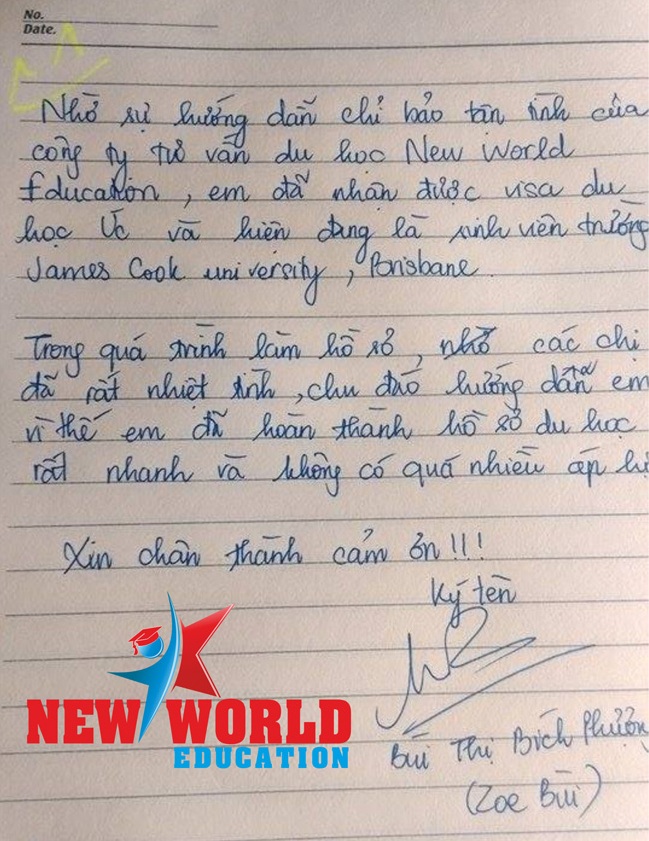 No.
Date.
Nhờ sự hướng dẫn chỉ bảo tận tình của
công ty tư vấn du học New World
Education, em đã nhận được visa du
học Úc và hiện đang là sinh viên trường
James Cook university, Brisbane.
Trong quá trình làm hồ sơ, nhờ các chị
đã rất nhiệt tình, chu đáo hướng dẫn em
vì thế em đã hoàn thành hồ sơ du học
rất nhanh và không có quá nhiều áp
Xin chân thành cảm ơn!!!
Ký tên
Bùi Thị Bích Phượng
(Zoe Bùi)
NEW WORLD
EDUCATION